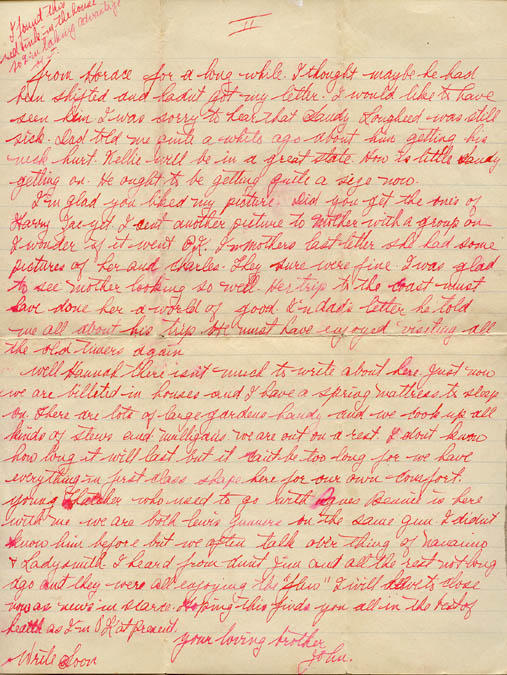 I found this
red ink in the house
so am taking advantage
of it
II
from Horace for a long while. I thought maybe he had
been shifted and hadnt got my letter. I would like to have
seen him I was sorry to hear that Sandy Lougheed was still
sick. Dad told me quite a while ago about him getting his
neck hurt. Nellie will be in a great state. How is little Sandy
getting on. He ought to be getting quite a size now.
I'm glad you liked my picture. Did you get the ones of
Harry and I sent another picture to Mother with a group on
I wonder if it went O.K. In Mothers last letter she had some
pictures of her and Charles. They sure were fine I was glad
to see Mother looking so well. Her trip to the coast must
have done her a world of good. In dad's letter he told
me all about his trip. He must have enjoyed visiting all
the old timers again
Well Hannah there isn't much to write about here. Just now
we are billeted in houses and I have a spring mattress to sleep
on. There are lots of large gardens handy and we cook up all
kinds of stews and mulligans we are out on a rest. I dont know
how long it will last but it can't be too long for we have
everything in first class shape here for our own comfort.
Young who used to go with Agnes Bennie is here
with me we are both lewis gunners on the same gun I didn't
know him before but we often talk over thing of Nanaimo
& Ladysmith I heard from Aunt Jim and all the rest not long
ago and they were all enjoying the "flu" I will have to close
now as news is scarce. Hoping this finds you all in the best of
health as I'm O.K. at present.
Your loving brother
Write Soon John.